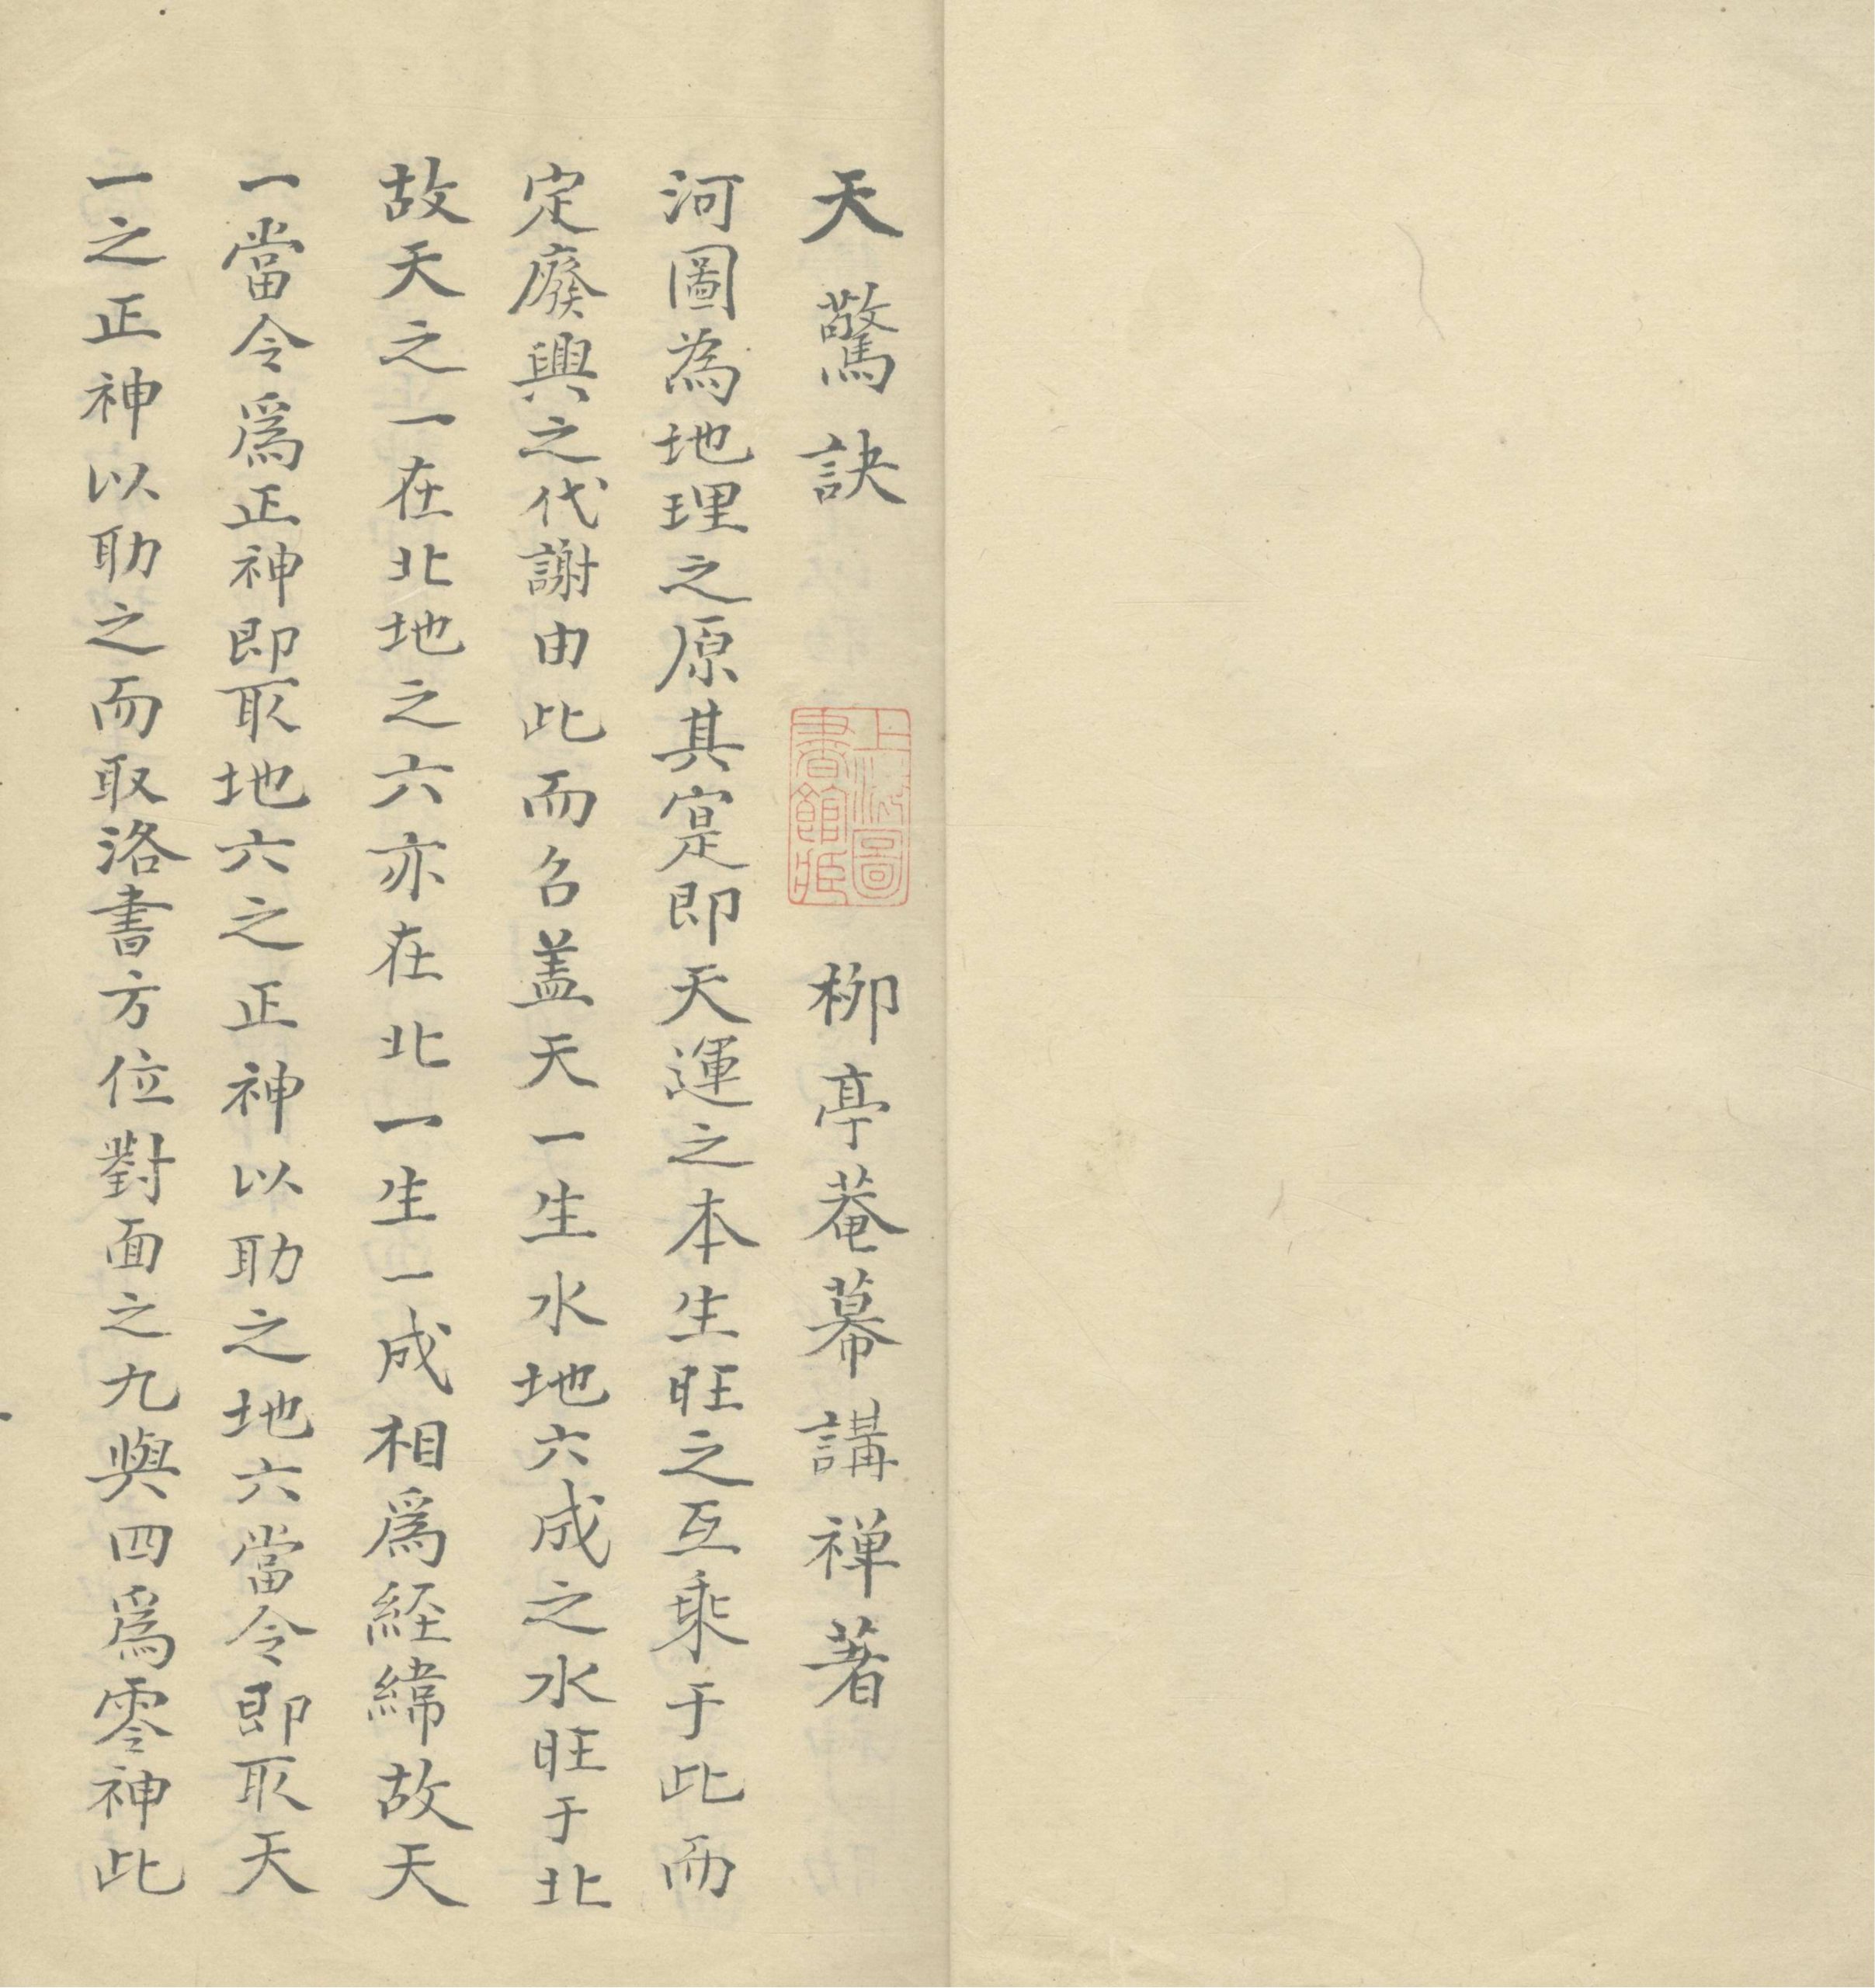 天驚訣
上海圖書館藏
柳亭菴幕講禅著
河圖為地理之原其寔即天運之本生旺之互乘于此而
定廢興之代謝由此而名盖天一生水地六成之水旺于北
故天之一在北地之六亦在北一生一成相爲経緯故天
一當令爲正神即取地六之正神以助之地六當令即取天
一之正神以助之而取洛書方位對面之九與四爲零神此